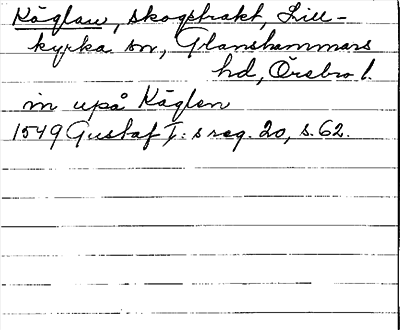 Käglan, skogstrakt, Lill-
kyrka sn, Glanshammars
hd, Örebro l.
in upå Käglen
1549 Gustaf I:s reg. 20, s. 62.